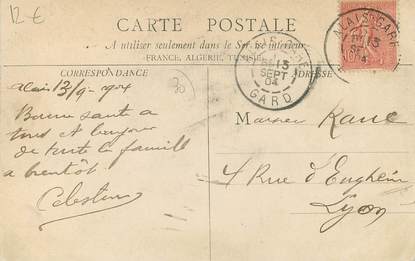 12 €
CARTE POSTALE
A utiliser seulement dans le Service intérieur
FRANCE, ALGERIE, TUNISIE
CORRESPONDANCE
ADRESSE
ALAIS-GARE
13
SEPT
04
GARD
ALAIS-GARE
13
04
30
Alais 13/9-1904
Bonne santé a
tous et bonjour
de toute la famille
a bientôt
Celestin
Marcer Kanc
4 Rue d'Enghein
Lyon